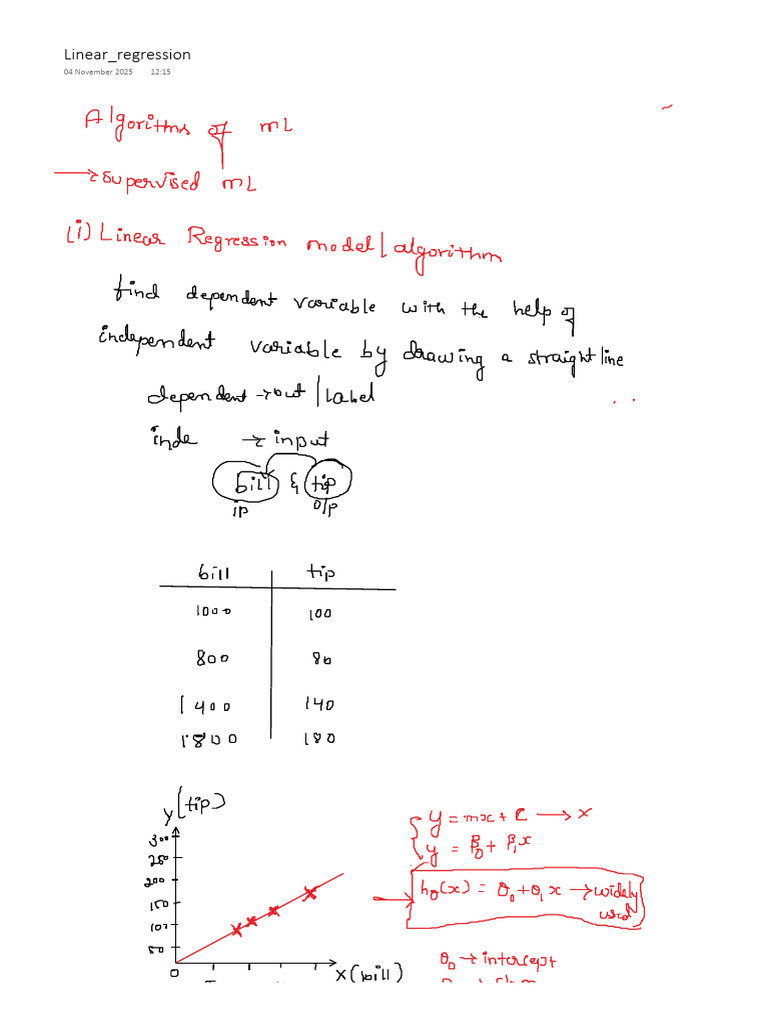 Linear_regression
04 November 2025 12:15
Algorithms of mL
→ supervised mL
(i) Linear Regression model/algorithm
find dependent variable with the help of
independent variable by drawing a straight line
dependent → out/Label
inde → input
bill & tip
ip o/p
bill tip
1000 100
800 80
1400 140
1800 180
y(tip)
300
250
200
150
100
50
0
x(bill)
y = mx + c → x
y = β₀ + β₁x
hθ(x) = θ₀ + θ₁x → widely
used
θ₀ → intercept